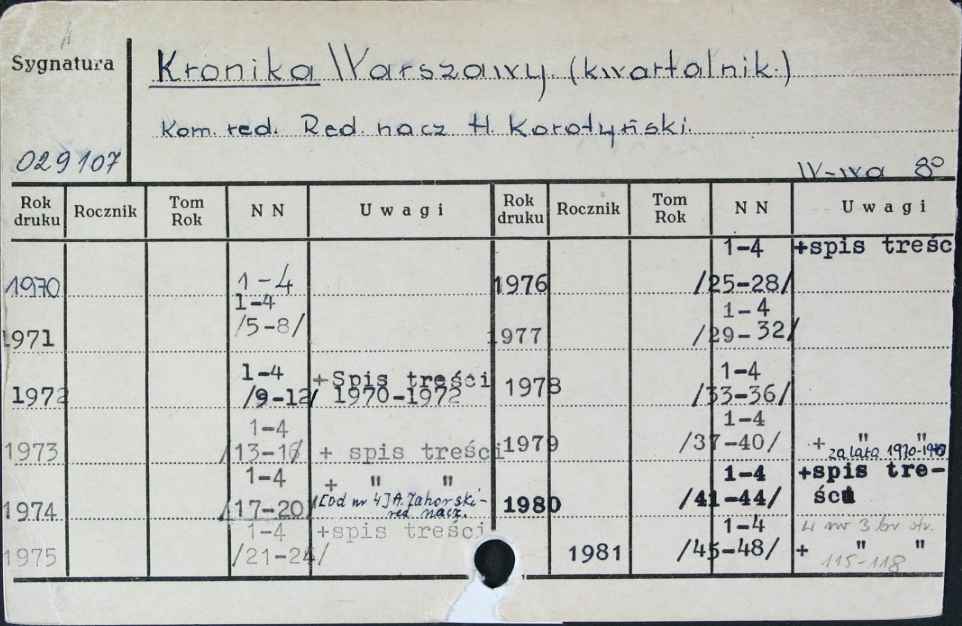 Sygnatura
Kronika Warszawy (kwartalnik.)
Kom. red. Red. nacz H. Korotyński.
029107
W-wa 8°
Rok druku Rocznik Tom Rok NN Uwagi Rok druku Rocznik Tom Rok NN Uwagi
1970 1-4
1971 1-4 /5-8/
1972 1-4 /9-12/ +Spis treści 1970-1972
1973 1-4 /13-16/ + spis treści
1974 1-4 /17-20/ + " " [Od nr 4] A. Zahorski - red. nacz.
1975 1-4 /21-24/ +spis treści
1976 1-4 /25-28/ +spis treśc
1977 1-4 /29-32/
1978 1-4 /33-36/
1979 1-4 /37-40/ + " " za lata 1970-1979
1980 1-4 /41-44/ +spis tre-ści
1981 1-4 /45-48/ + " " nr 3 br str. 115-118